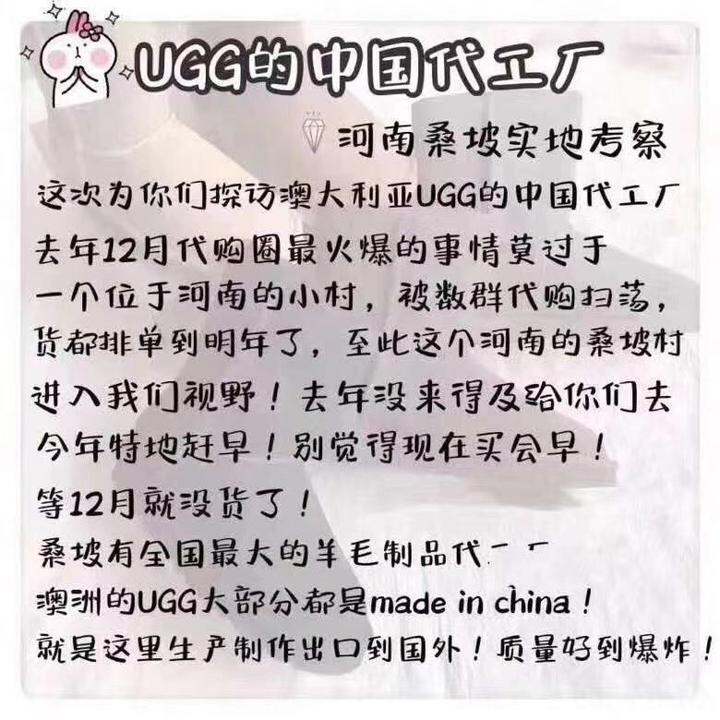 UGG的中国代工厂
河南桑坡实地考察
这次为你们探访澳大利亚UGG的中国代工厂
去年12月代购圈最火爆的事情莫过于
一个位于河南的小村，被数群代购扫荡，
货都排单到明年了，至此这个河南的桑坡村
进入我们视野！去年没来得及给你们去
今年特地赶早！别觉得现在买会早！
等12月就没货了！
桑坡有全国最大的羊毛制品代
澳洲的UGG大部分都是made in china！
就是这里生产制作出口到国外！质量好到爆炸！